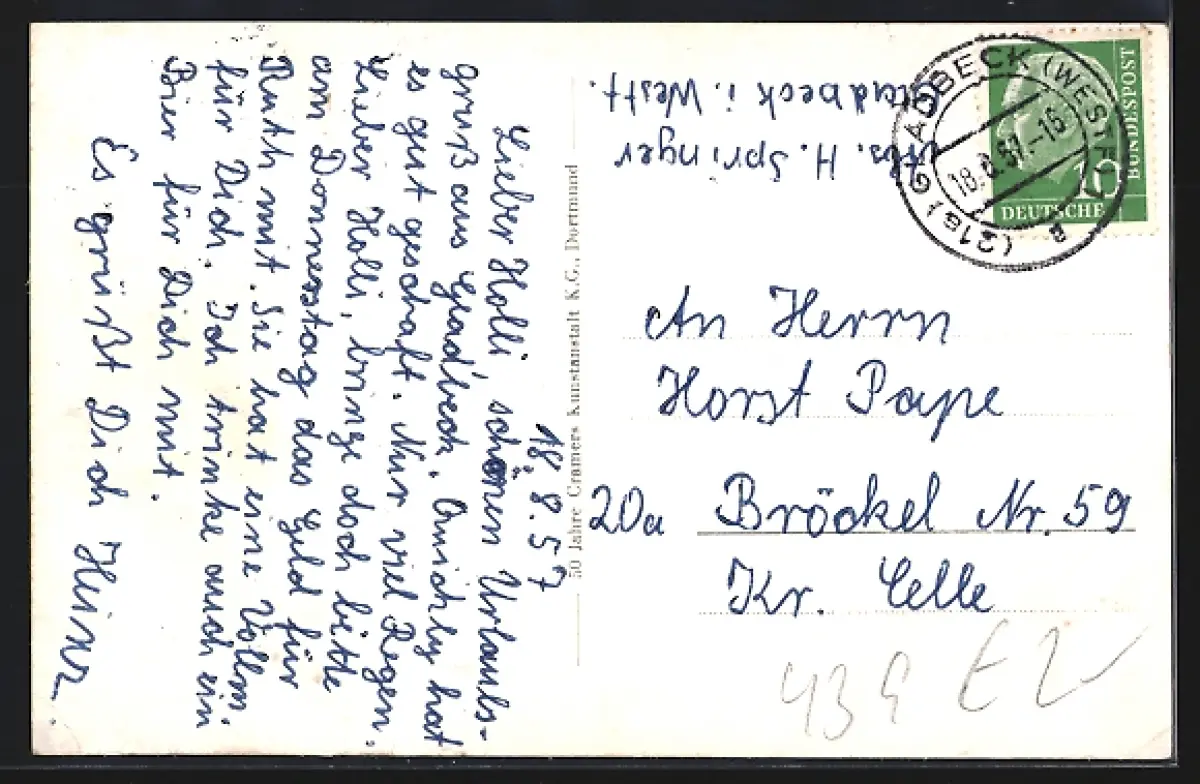 18.8.57
Lieber Holli schönen Urlaubs-
gruß aus Gladbeck. Omichly hat
es gut geschaft. Nur viel Regen.
Lieber Holli, bringe doch bitte
am Donnerstag das Geld für
Ruth mit. Sie hat eine Vollm.
für Dich. Ich trinke auch ein
Bier für Dich mit.
Es grüßt Dich Heinz.
50 Jahre Cramers Kunstanstalt K.G., Dortmund
Abs. H. Springer
Gladbeck i. Westf.
(21a) GLADBECK (WESTF)
18.8.57.-16
a
10
DEUTSCHE
BUNDESPOST
An Herrn
Horst Pape
20a Bröckel Nr. 59
Kr. Celle
439 E2